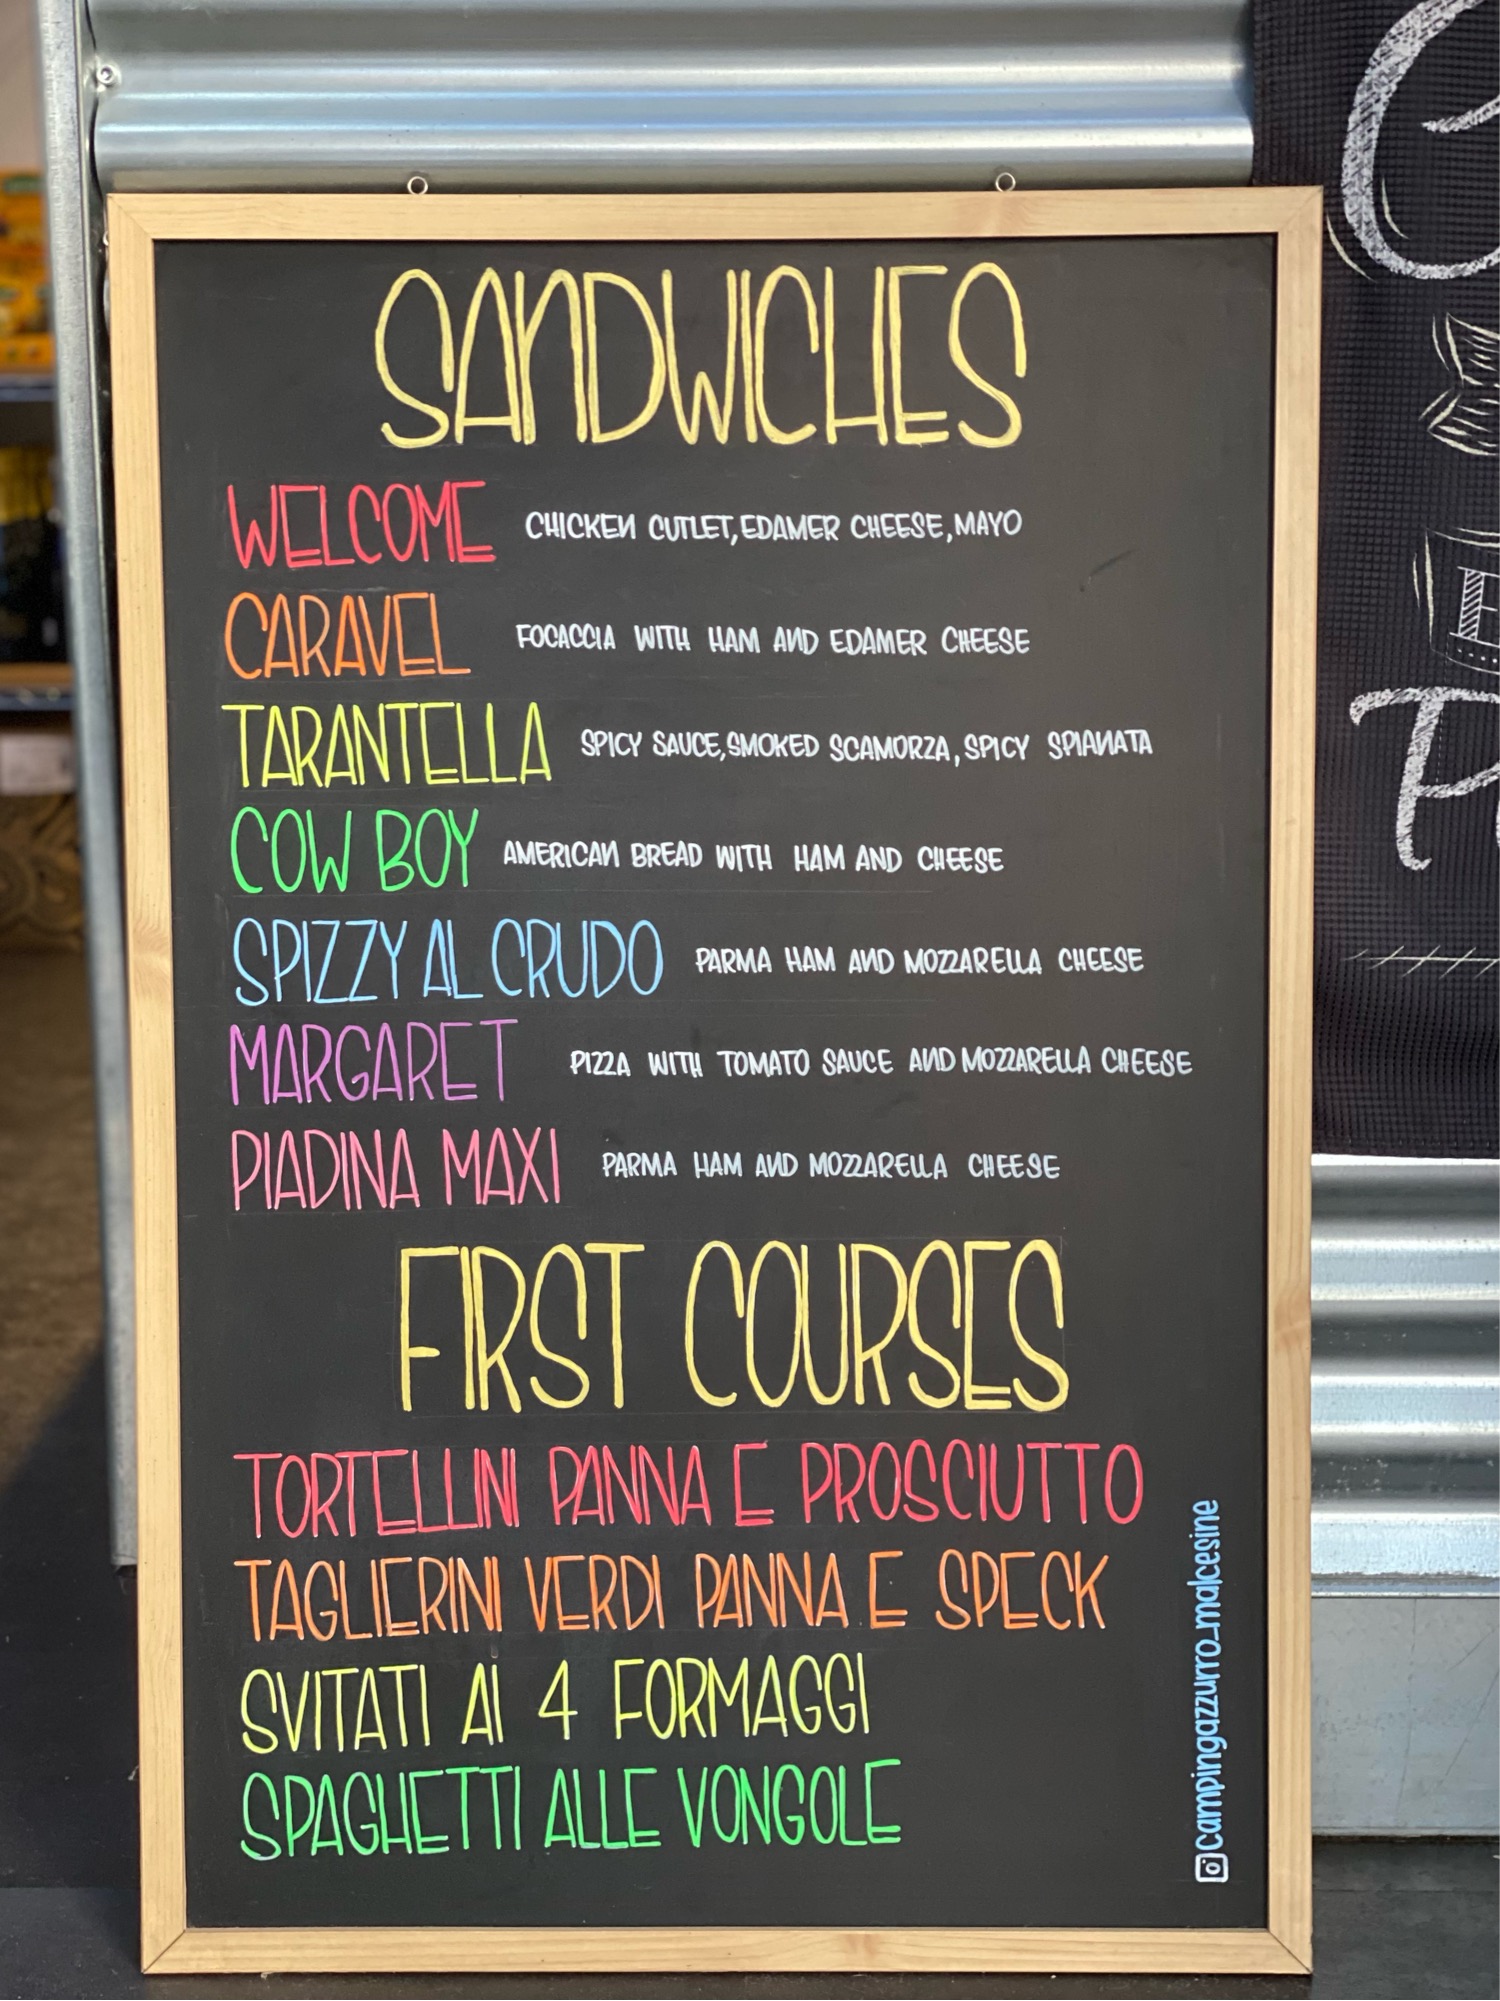 SANDWICHES
WELCOME CHICKEN CUTLET, EDAMER CHEESE, MAYO
CARAVEL FOCACCIA WITH HAM AND EDAMER CHEESE
TARANTELLA SPICY SAUCE, SMOKED SCAMORZA, SPICY SPIANATA
COW BOY AMERICAN BREAD WITH HAM AND CHEESE
SPIZZY AL CRUDO PARMA HAM AND MOZZARELLA CHEESE
MARGARET PIZZA WITH TOMATO SAUCE AND MOZZARELLA CHEESE
PIADINA MAXI PARMA HAM AND MOZZARELLA CHEESE
FIRST COURSES
TORTELLINI PANNA E PROSCIUTTO
TAGLIERINI VERDI PANNA E SPECK
SVITATI AI 4 FORMAGGI
SPAGHETTI ALLE VONGOLE
campingazzurro_malcesine